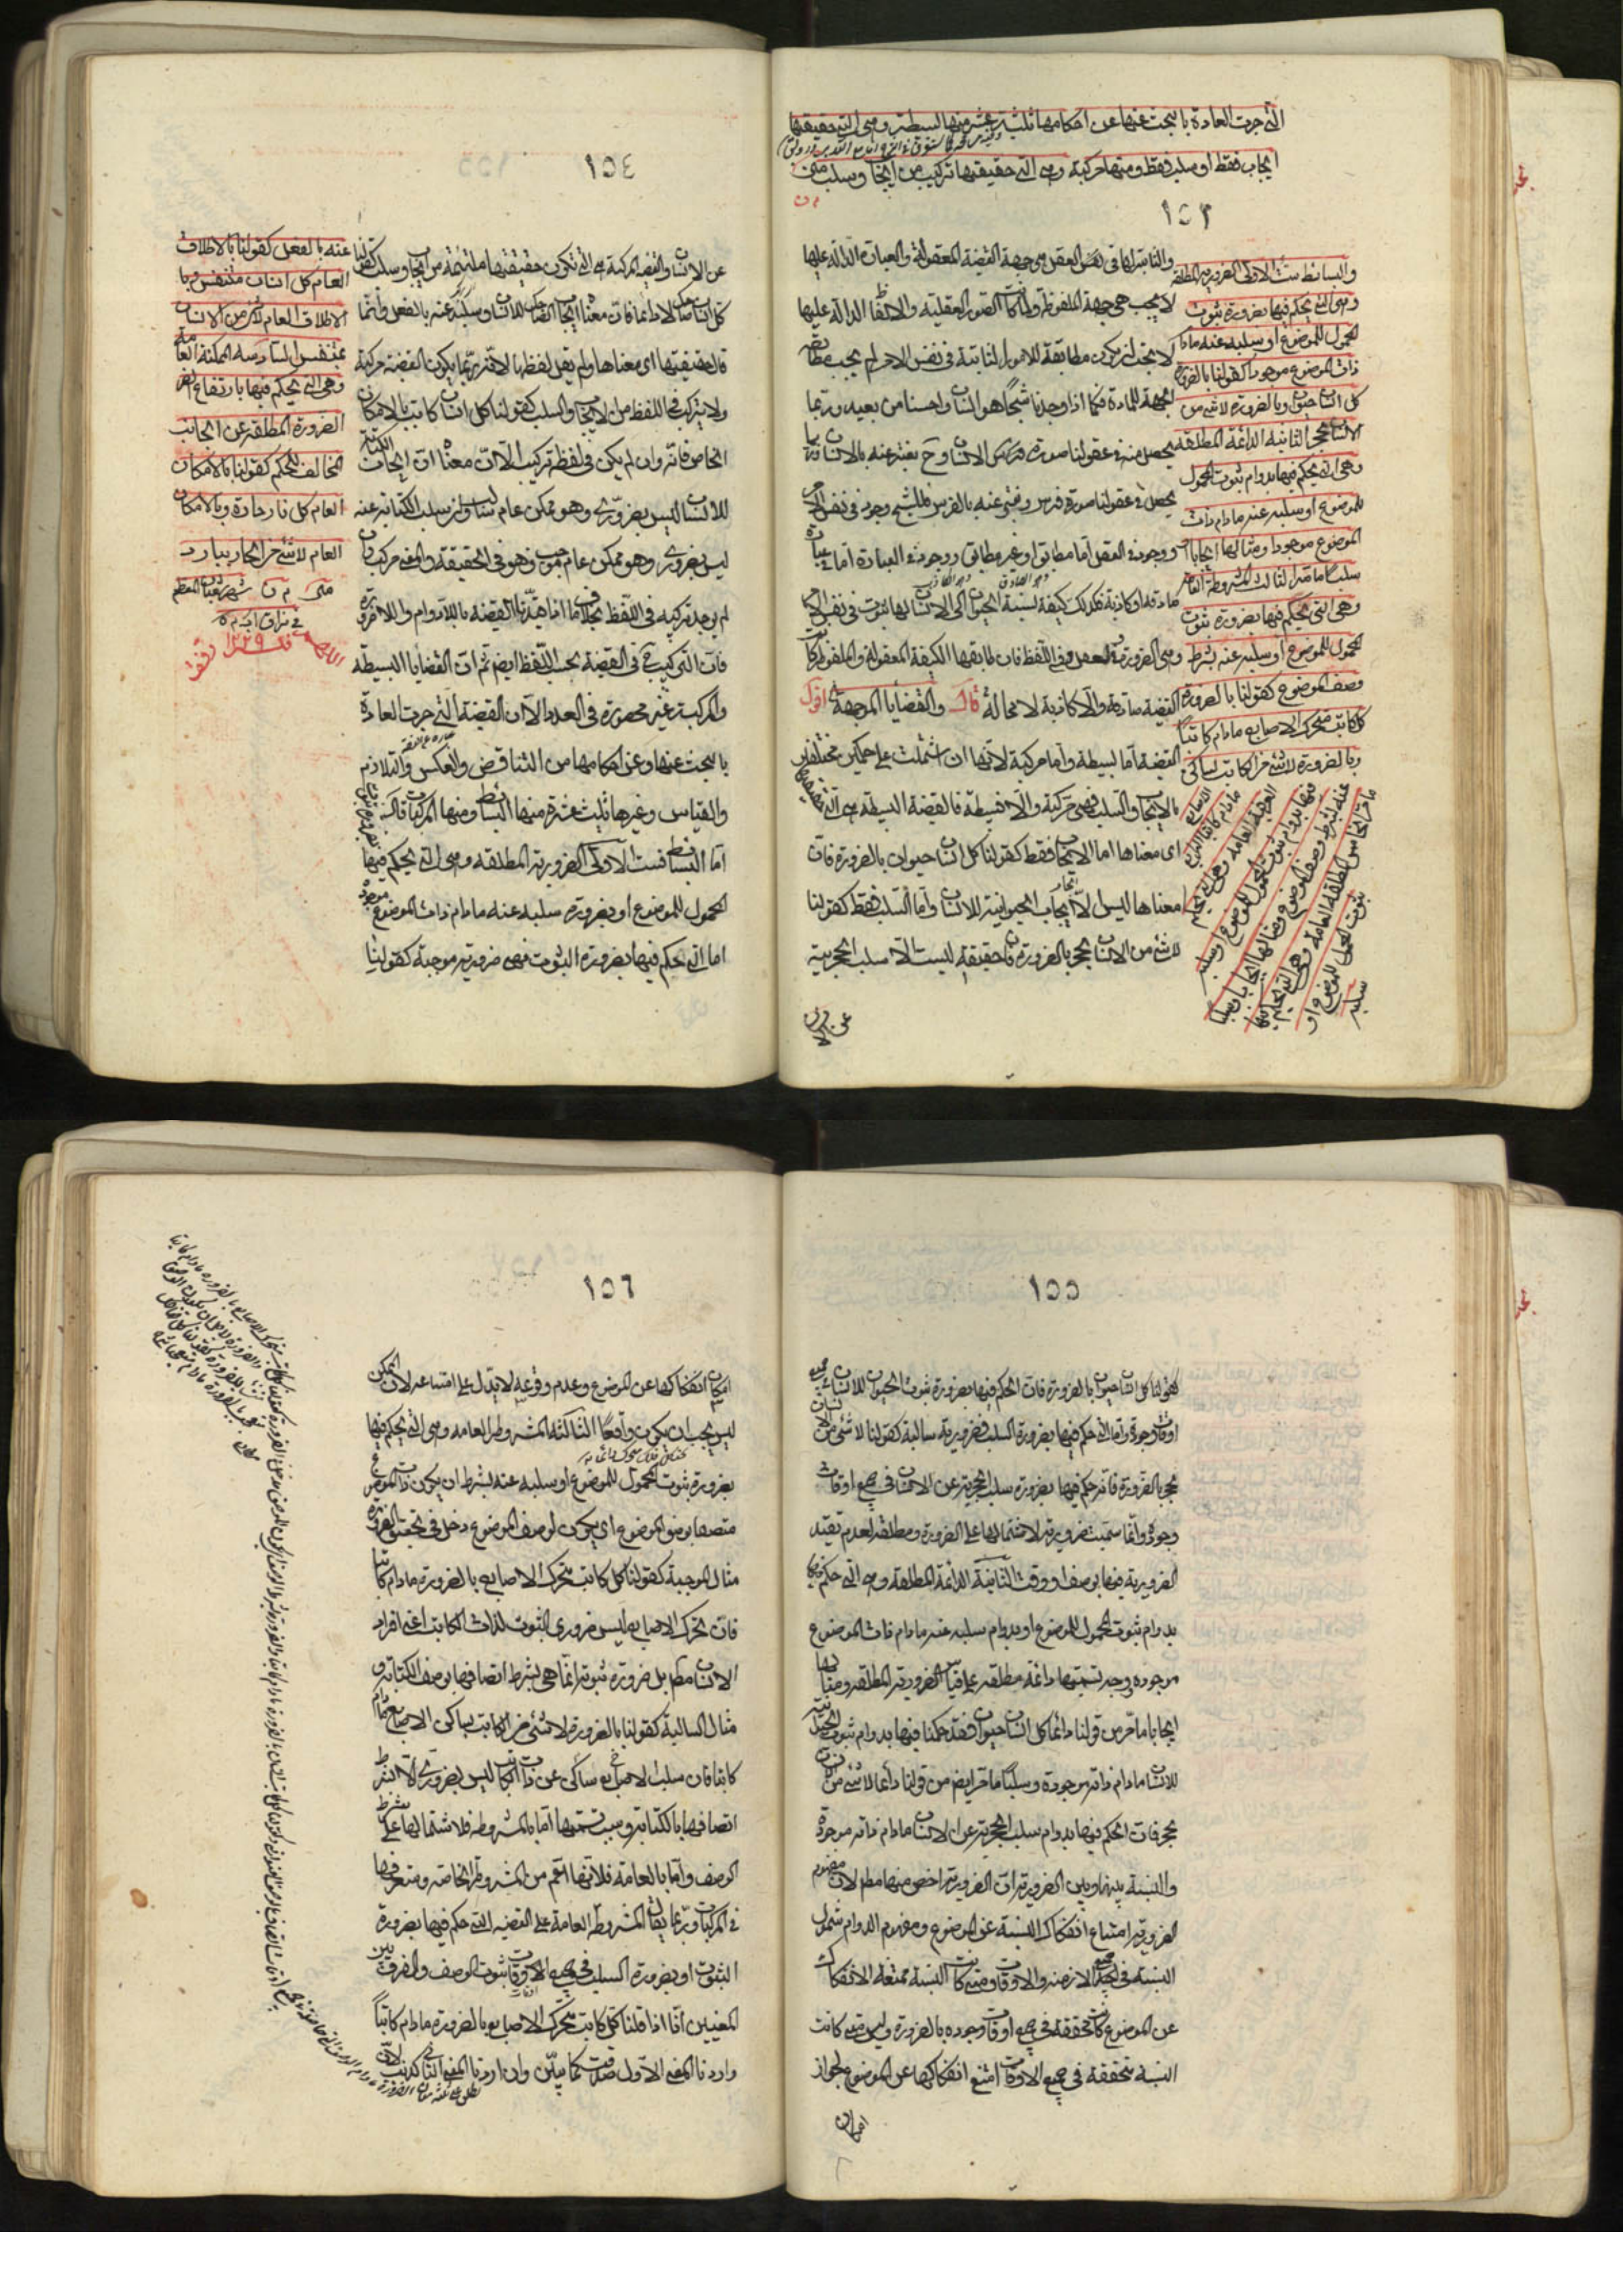 التي جرت العادة بالبحث عنها وعن احكامها ثلثة عشر منها البسيطة وهي التي حقيقتها
ايجاب فقط او سلب فقط ومنها مركبة وهي التي حقيقتها تركبت من ايجاب وسلب متن
١٥٣
والثابتة لها في نفس العقل هي جهة القضية المعقولة والعبارة الدالة عليها
هي جهة الملفوظة ولما كانت الصور العقلية والالفاظ الدالة عليها
لا يجب ان يكون مطابقة للامور الثابتة في نفس الامر لم يجب مطابقة
الجهة للمادة فكما اذا وجدنا شبحا هو انسان واحسسنا من بعيد وربما
يحصل منه في عقولنا صورة انسان وح يعبر عنه بالانسان وربما
يحصل في عقولنا صورة فرس ويعبر عنه بالفرس فللشبح وجود في نفس الامر
ووجود في العقل اما مطابق او غير مطابق ووجود في العبارة اما عبارة
صادقة او كاذبة فكذلك كيفية نسبة الحيوان الى الانسان لها ثبوت في نفس الامر
وهي الضرورة وفي العقل وفي اللفظ فان طابقها الكيفية المعقولة والملفوظة كانت
القضية صادقة والا كاذبة لا محالة قال والقضايا الموجهة اقول
القضية اما بسيطة واما مركبة لانها ان اشتملت على حكمين مختلفين
بالايجاب والسلب فهي مركبة والا فبسيطة فالقضية البسيطة هي التي حقيقتها
اى معناها اما الايجاب فقط كقولنا كل انسان حيوان بالضرورة فان
معناها ليس الا ايجاب الحيوانية للانسان واما السلب فقط كقولنا
لا شئ من الانسان بحجر بالضرورة فان حقيقته ليست الا سلب الحجرية
عن الانسان
والبسائط ست الاولى الضرورية المطلقة
وهي التي يحكم فيها بضرورة ثبوت
المحمول للموضوع او سلبه عنه مادام
ذات الموضوع موجودا كقولنا بالضرورة
كل انسان حيوان وبالضرورة لا شئ من
الانسان بحجر الثانية الدائمة المطلقة
وهي التي يحكم فيها بدوام ثبوت المحمول
للموضوع او سلبه عنه مادام ذات
الموضوع موجودا ومثالها ايجابا
وسلبا ما مر الثالث المشروطة العامة
وهي التي يحكم فيها بضرورة ثبوت
المحمول للموضوع او سلبه عنه بشرط
وصف الموضوع كقولنا بالضرورة
كل كاتب متحرك الاصابع مادام كاتبا
وبالضرورة لا شئ من الكاتب بساكن
الاصابع مادام كاتبا الرابعة
العرفية العامة وهي التي يحكم
فيها بدوام ثبوت المحمول للموضوع او سلبه
عنه بشرط وصف الموضوع ومثالها ايجابا وسلبا
ما مر الخامس المطلقة العامة وهي التي يحكم فيها
بثبوت المحمول للموضوع او
سلبه
١٥٤
عن الانسان والقضية المركبة هي التي تكون حقيقتها ملتئمة من ايجاب وسلب كقولنا
كل انسان ضاحك لا دائما فان معناه ايجاب الضحك للانسان وسلبه عنه بالفعل وانما
قال حقيقتها اى معناها ولم يقل لفظها لانه ربما يكون القضية مركبة
ولا تركيب في اللفظ من الايجاب والسلب كقولنا كل انسان كاتب بالامكان
الخاص فانه وان لم يكن في لفظه تركيب الا ان معناه ان ايجاب الكتابة
للانسان ليس بضروري وهو ممكن عام سالب وان سلب الكتابة عنه
ليس بضروري وهو ممكن عام موجب فهو في الحقيقة والمعنى مركب وان
لم يوجد تركيب في اللفظ بخلاف ما اذا قيدنا القضية باللادوام واللاضرورة
فان التركيب ح في القضية بحسب اللفظ ايضم ثم ان القضايا البسيطة
والمركبة غير محصورة في العدد الا ان القضية التي جرت العادة
بالبحث عنها وعن احكامها من التناقض والعكس والتلازم
والقياس وغيرها ثلث عشرة منها البسائط ومنها المركبات قال
اما البسائط فست الاولى الضرورية المطلقة وهي التي يحكم فيها
المحمول للموضوع او بضرورة سلبه عنه مادام ذات الموضوع موجودة
اما التي حكم فيها بضرورة الثبوت فهي ضرورية موجبة كقولنا
عنه بالفعل كقولنا بالاطلاق
العام كل انسان متنفس وبا
الاطلاق العام لا شئ من الانسان
بمتنفس السادسة الممكنة العامة
وهي التي يحكم فيها بارتفاع
الضرورة المطلقة عن الجانب
المخالف للحكم كقولنا بالامكان
العام كل نار حارة وبالامكان
العام لا شئ من الحار ببارد
متن م ن شهر شعبان المعظم
١٢٢٩
١٥٥
كقولنا كل انسان حيوان بالضرورة فان الحكم فيها بضرورة ثبوت الحيوان للانسان في جميع
اوقات وجوده واما التي حكم فيها بضرورة السلب فضرورية سالبة كقولنا لا شئ من الانسان
بحجر بالضرورة فانه حكم فيها بضرورة سلب الحجرية عن الانسان في جميع اوقات
وجوده وانما سميت ضرورية لاشتمالها على الضرورة ومطلقة لعدم تقييد
الضرورية فيها بوصف او وقت الثانية الدائمة المطلقة وهي التي حكم فيها
بدوام ثبوت المحمول للموضوع او بدوام سلبه عنه مادام ذات الموضوع
موجودة ووجه تسميتها دائمة مطلقة على قياس الضرورية المطلقة ومثالها
ايجابا ما مر من قولنا دائما كل انسان حيوان فقد حكمنا فيها بدوام ثبوت الحيوانية
للانسان مادام ذاته موجودة وسلبا ما مر ايضم من قولنا دائما لا شئ من الانسان
بحجر فان الحكم فيها بدوام سلب الحجرية عن الانسان مادام ذاته موجودة
والنسبة بينها وبين الضرورية ان الضرورية اخص منها مطم لان مفهوم
الضرورية امتناع انفكاك النسبة عن الموضوع ومفهوم الدوام شمول
النسبة في جميع الازمنة والاوقات ومتى كانت النسبة ممتنعة الانفكاك
عن الموضوع كانت متحققة في جميع اوقات وجوده بالضرورة وليس متى كانت
النسبة متحققة في جميع الاوقات امتنع انفكاكها عن الموضوع لجواز
امكان
١٥٦
امكان انفكاكها عن الموضوع وعدم وقوعه لا يدل على امتناعه لان الممكن
ليس يجب ان يكون واقعا الثالثة المشروطة العامة وهي التي يحكم فيها
بضرورة ثبوت المحمول للموضوع او سلبه عنه بشرط ان يكون ذات الموضوع
متصفا بوصف الموضوع اى يكون لوصف الموضوع دخل في تحقق الضرورة
مثال الموجبة كقولنا كل كاتب متحرك الاصابع بالضرورة مادام كاتبا
فان تحرك الاصابع ليس ضروري الثبوت لذات الكاتب اعنى افراد
الانسان مطم بل ضرورة ثبوته انما هي بشرط اتصافها بوصف الكتابة و
مثال السالبة كقولنا بالضرورة لا شئ من الكاتب بساكن الاصابع مادام
كاتبا فان سلب ساكن الاصابع عن ذات الكاتب ليس بضروري الا بشرط
اتصافها بالكتابة وسبب تسميتها اما بالمشروطة فلاشتمالها على شرط
الوصف واما بالعامة فلانها اعم من المشروطة الخاصة وستعرفها
في المركبات وربما يقال المشروطة العامة على القضية التي حكم فيها بضرورة
الثبوت او بضرورة السلب في جميع الاوقات ثبوت الوصف والفرق بين
المعنيين انا اذا قلنا كل كاتب متحرك الاصابع بالضرورة مادام كاتبا
واردنا المعنى الاول صدقت كما تبين وان اردنا المعنى الثاني كذبت لان